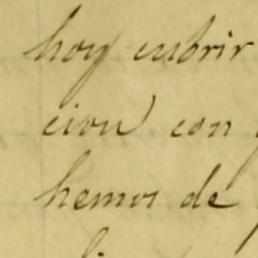 hoy cubrir
cion con
hemos de